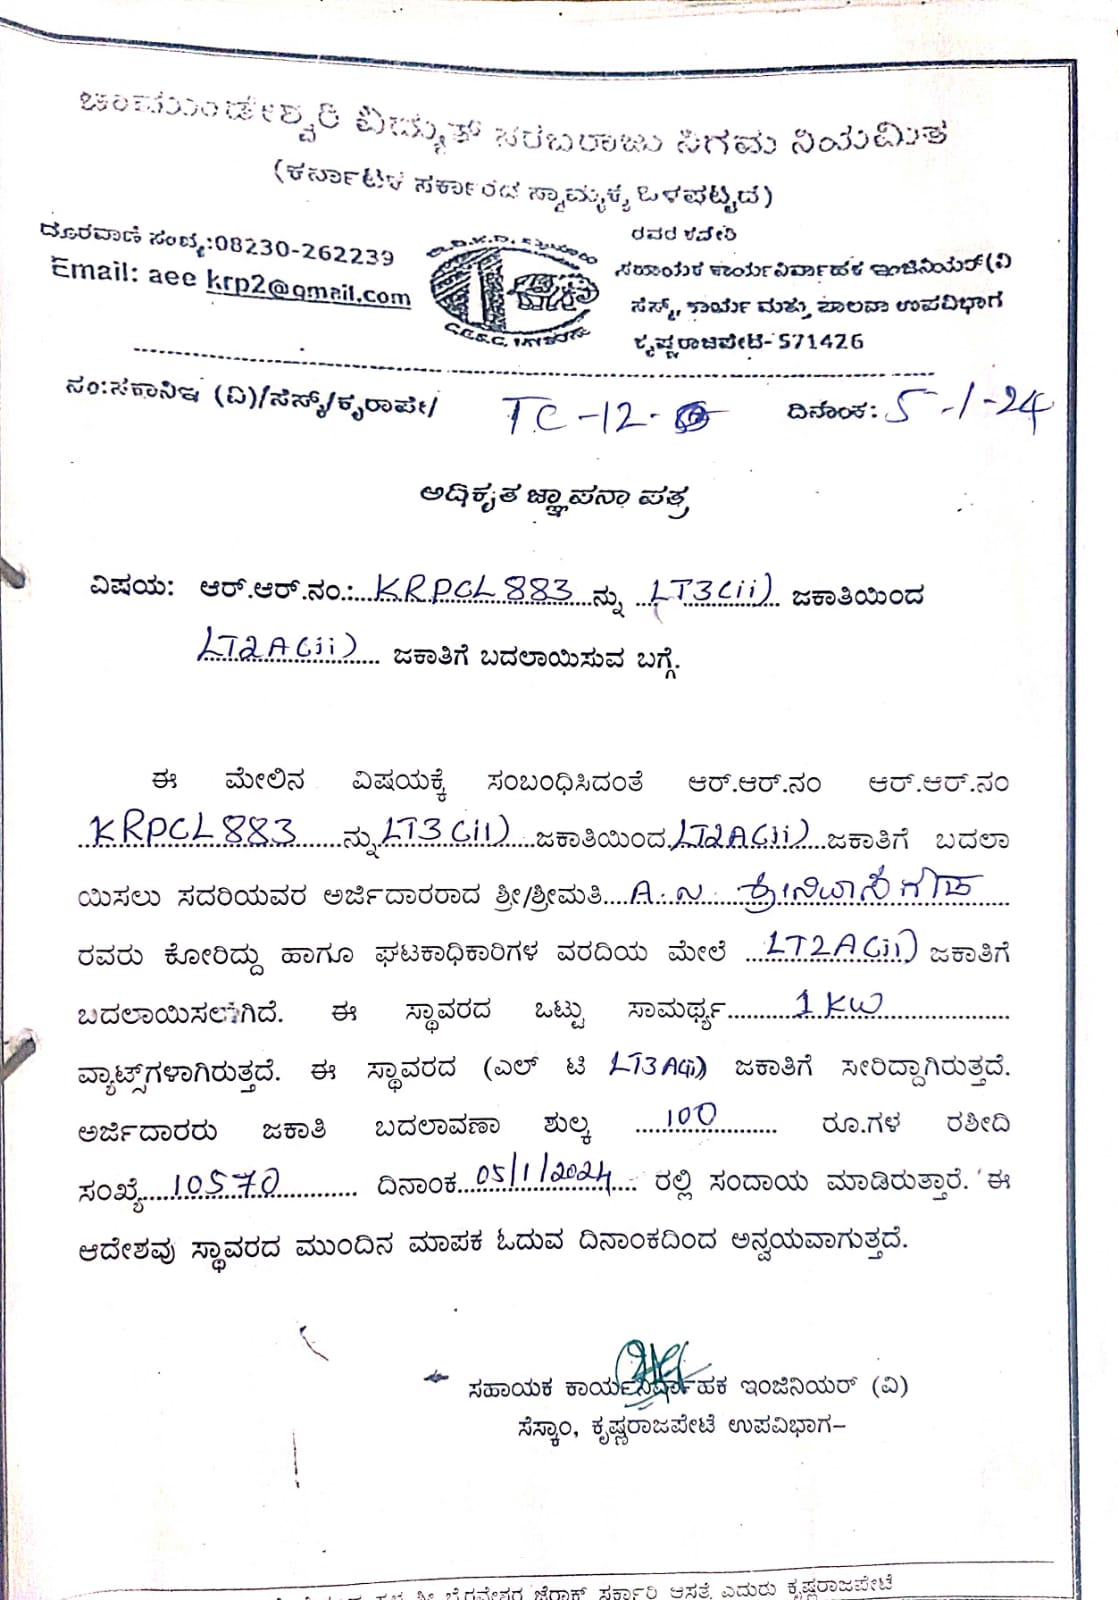 ಚಾಮುಂಡೇಶ್ವರಿ ವಿದ್ಯುತ್ ಸರಬರಾಜು ನಿಗಮ ನಿಯಮಿತ
(ಕರ್ನಾಟಕ ಸರ್ಕಾರದ ಸ್ವಾಮ್ಯಕ್ಕೆ ಒಳಪಟ್ಟಿದೆ)
ದೂರವಾಣಿ ಸಂಖ್ಯೆ:08230-262239
Email: aee krp2@gmail.com
ರವರ ಕಚೇರಿ
ಸಹಾಯಕ ಕಾರ್ಯನಿರ್ವಾಹಕ ಇಂಜಿನಿಯರ್(ವಿ
ಸೆಸ್ಕ್, ಕಾರ್ಯ ಮತ್ತು ಪಾಲನಾ ಉಪವಿಭಾಗ
ಕೃಷ್ಣರಾಜಪೇಟೆ-571426
ಸಂ:ಸಕಾನಿಇ (ವಿ)/ಸೆಸ್ಕ್/ಕೃರಾಪೇ/ TC-12- ದಿನಾಂಕ: 5-1-24
ಅಧಿಕೃತ ಜ್ಞಾಪನಾ ಪತ್ರ
ವಿಷಯ: ಆರ್.ಆರ್.ನಂ.:...KRPCL883...ನ್ನು ...LT3(ii)... ಜಕಾತಿಯಿಂದ
LT2A(ii)... ಜಕಾತಿಗೆ ಬದಲಾಯಿಸುವ ಬಗ್ಗೆ.
ಈ ಮೇಲಿನ ವಿಷಯಕ್ಕೆ ಸಂಬಂಧಿಸಿದಂತೆ ಆರ್.ಆರ್.ನಂ ಆರ್.ಆರ್.ನಂ
KRPCL883......ನ್ನು LT3(ii)...ಜಕಾತಿಯಿಂದ.LT2A(ii)...ಜಕಾತಿಗೆ ಬದಲಾ
ಯಿಸಲು ಸದರಿಯವರ ಅರ್ಜಿದಾರರಾದ ಶ್ರೀ/ಶ್ರೀಮತಿ....A.ನ. ಶ್ರೀನಿವಾಸೆಗೌಡ
ರವರು ಕೋರಿದ್ದು ಹಾಗೂ ಘಟಕಾಧಿಕಾರಿಗಳ ವರದಿಯ ಮೇಲೆ ...LT2A(ii) ಜಕಾತಿಗೆ
ಬದಲಾಯಿಸಲಾಗಿದೆ. ಈ ಸ್ಥಾವರದ ಒಟ್ಟು ಸಾಮರ್ಥ್ಯ.......1 KW.......
ವ್ಯಾಟ್ಸ್‌ಗಳಾಗಿರುತ್ತದೆ. ಈ ಸ್ಥಾವರದ (ಎಲ್ ಟಿ LT3A(ii) ಜಕಾತಿಗೆ ಸೀರಿದ್ದಾಗಿರುತ್ತದೆ.
ಅರ್ಜಿದಾರರು ಜಕಾತಿ ಬದಲಾವಣಾ ಶುಲ್ಕ ....100...... ರೂ.ಗಳ ರಶೀದಿ
ಸಂಖ್ಯೆ....10570........ ದಿನಾಂಕ..05/1/2024... ರಲ್ಲಿ ಸಂದಾಯ ಮಾಡಿರುತ್ತಾರೆ. ಈ
ಆದೇಶವು ಸ್ಥಾವರದ ಮುಂದಿನ ಮಾಪಕ ಓದುವ ದಿನಾಂಕದಿಂದ ಅನ್ವಯವಾಗುತ್ತದೆ.
ಸಹಾಯಕ ಕಾರ್ಯನಿರ್ವಾಹಕ ಇಂಜಿನಿಯರ್ (ವಿ)
ಸೆಸ್ಕಾಂ, ಕೃಷ್ಣರಾಜಪೇಟೆ ಉಪವಿಭಾಗ–
ಶ್ರೀ ಭೈರವೇಶ್ವರ ಜೆರಾಕ್ಸ್ ಸರ್ಕಾರಿ ಆಸ್ಪತ್ರೆ ಎದುರು ಕೃಷ್ಣರಾಜಪೇಟೆ